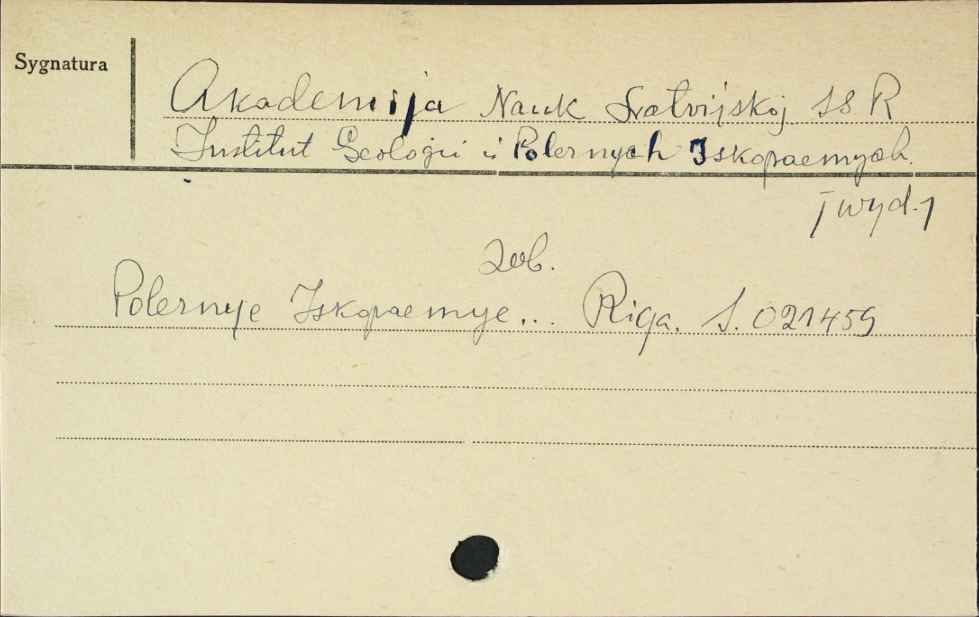 Sygnatura
Akademija Nauk Łatvijskoj SSR
Institut Geologii i Poleznych Iskopaemych.
/wyd./
zob.
Poleznye Iskopaemye... Riga. S. 021459